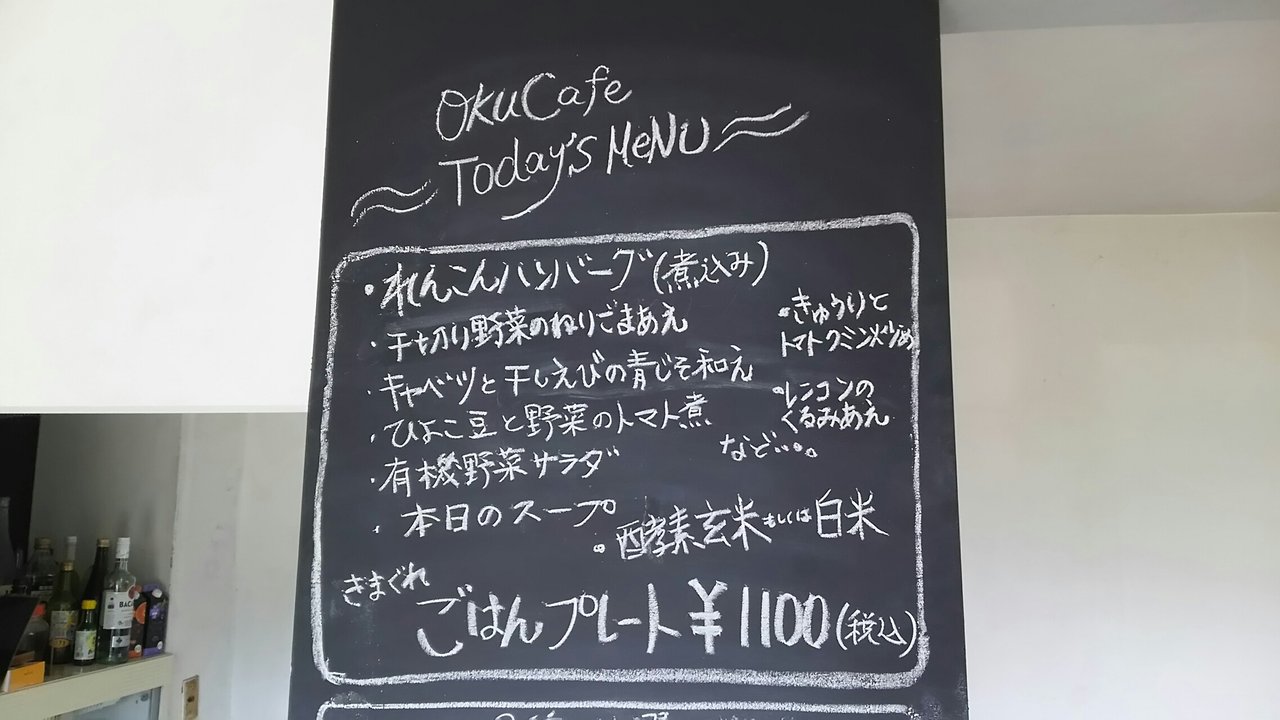 OKUCafe
Today's MeNU
・れんこんハンバーグ(煮込み)
・千切り野菜のねりごまあえ
・キャベツと干しえびの青じそ和え
・ひよこ豆と野菜のトマト煮
・有機野菜サラダ
・本日のスープ
・きゅうりと
トマトクミン炒め
・レンコンの
くるみあえ
など・・・。
・酵素玄米もしくは白米
きまぐれ
ごはんプレート ¥1100(税込)
BAC